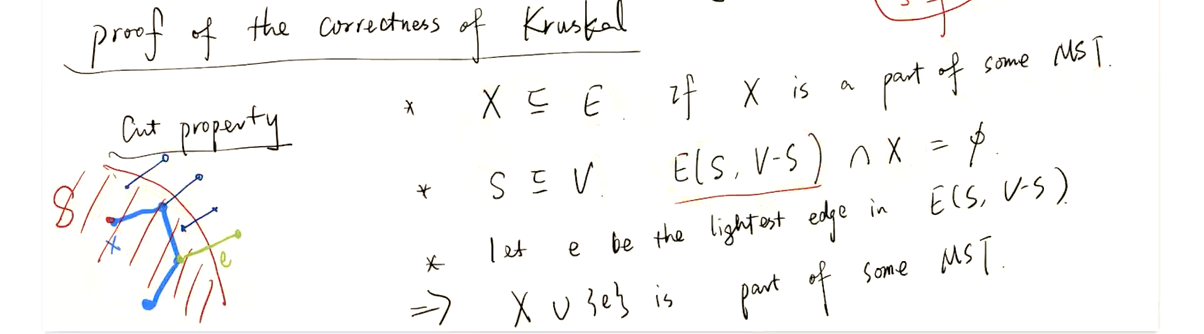 proof of the correctness of Kruskal
Cut property
* X ⊆ E. if X is a part of some MST.
* S ⊆ V. E(S, V-S) ∩ X = ϕ.
* let e be the lightest edge in E(S, V-S).
⇒ X ∪ {e} is part of some MST.
S
X
e